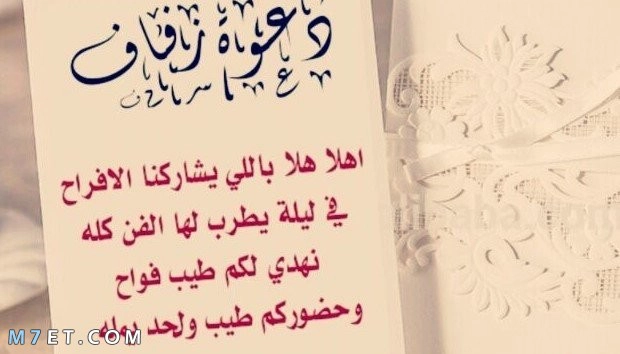 دعوة زفاف
اهلا هلا باللي يشاركنا الافراح
في ليلة يطرب لها الفن كله
نهدي لكم طيب فواح
وحضوركم طيب ولحد يمله
M7ET.COM